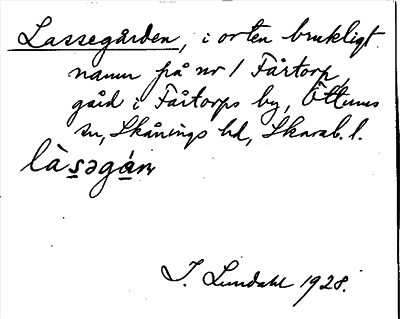 Lassegården, i orten brukligt
namn på nr 1 Fårtorp,
gård i Fårtorps by, Ottums
sn, Skånings hd, Skarab. l.
làsəgán
I. Lundahl 1928.